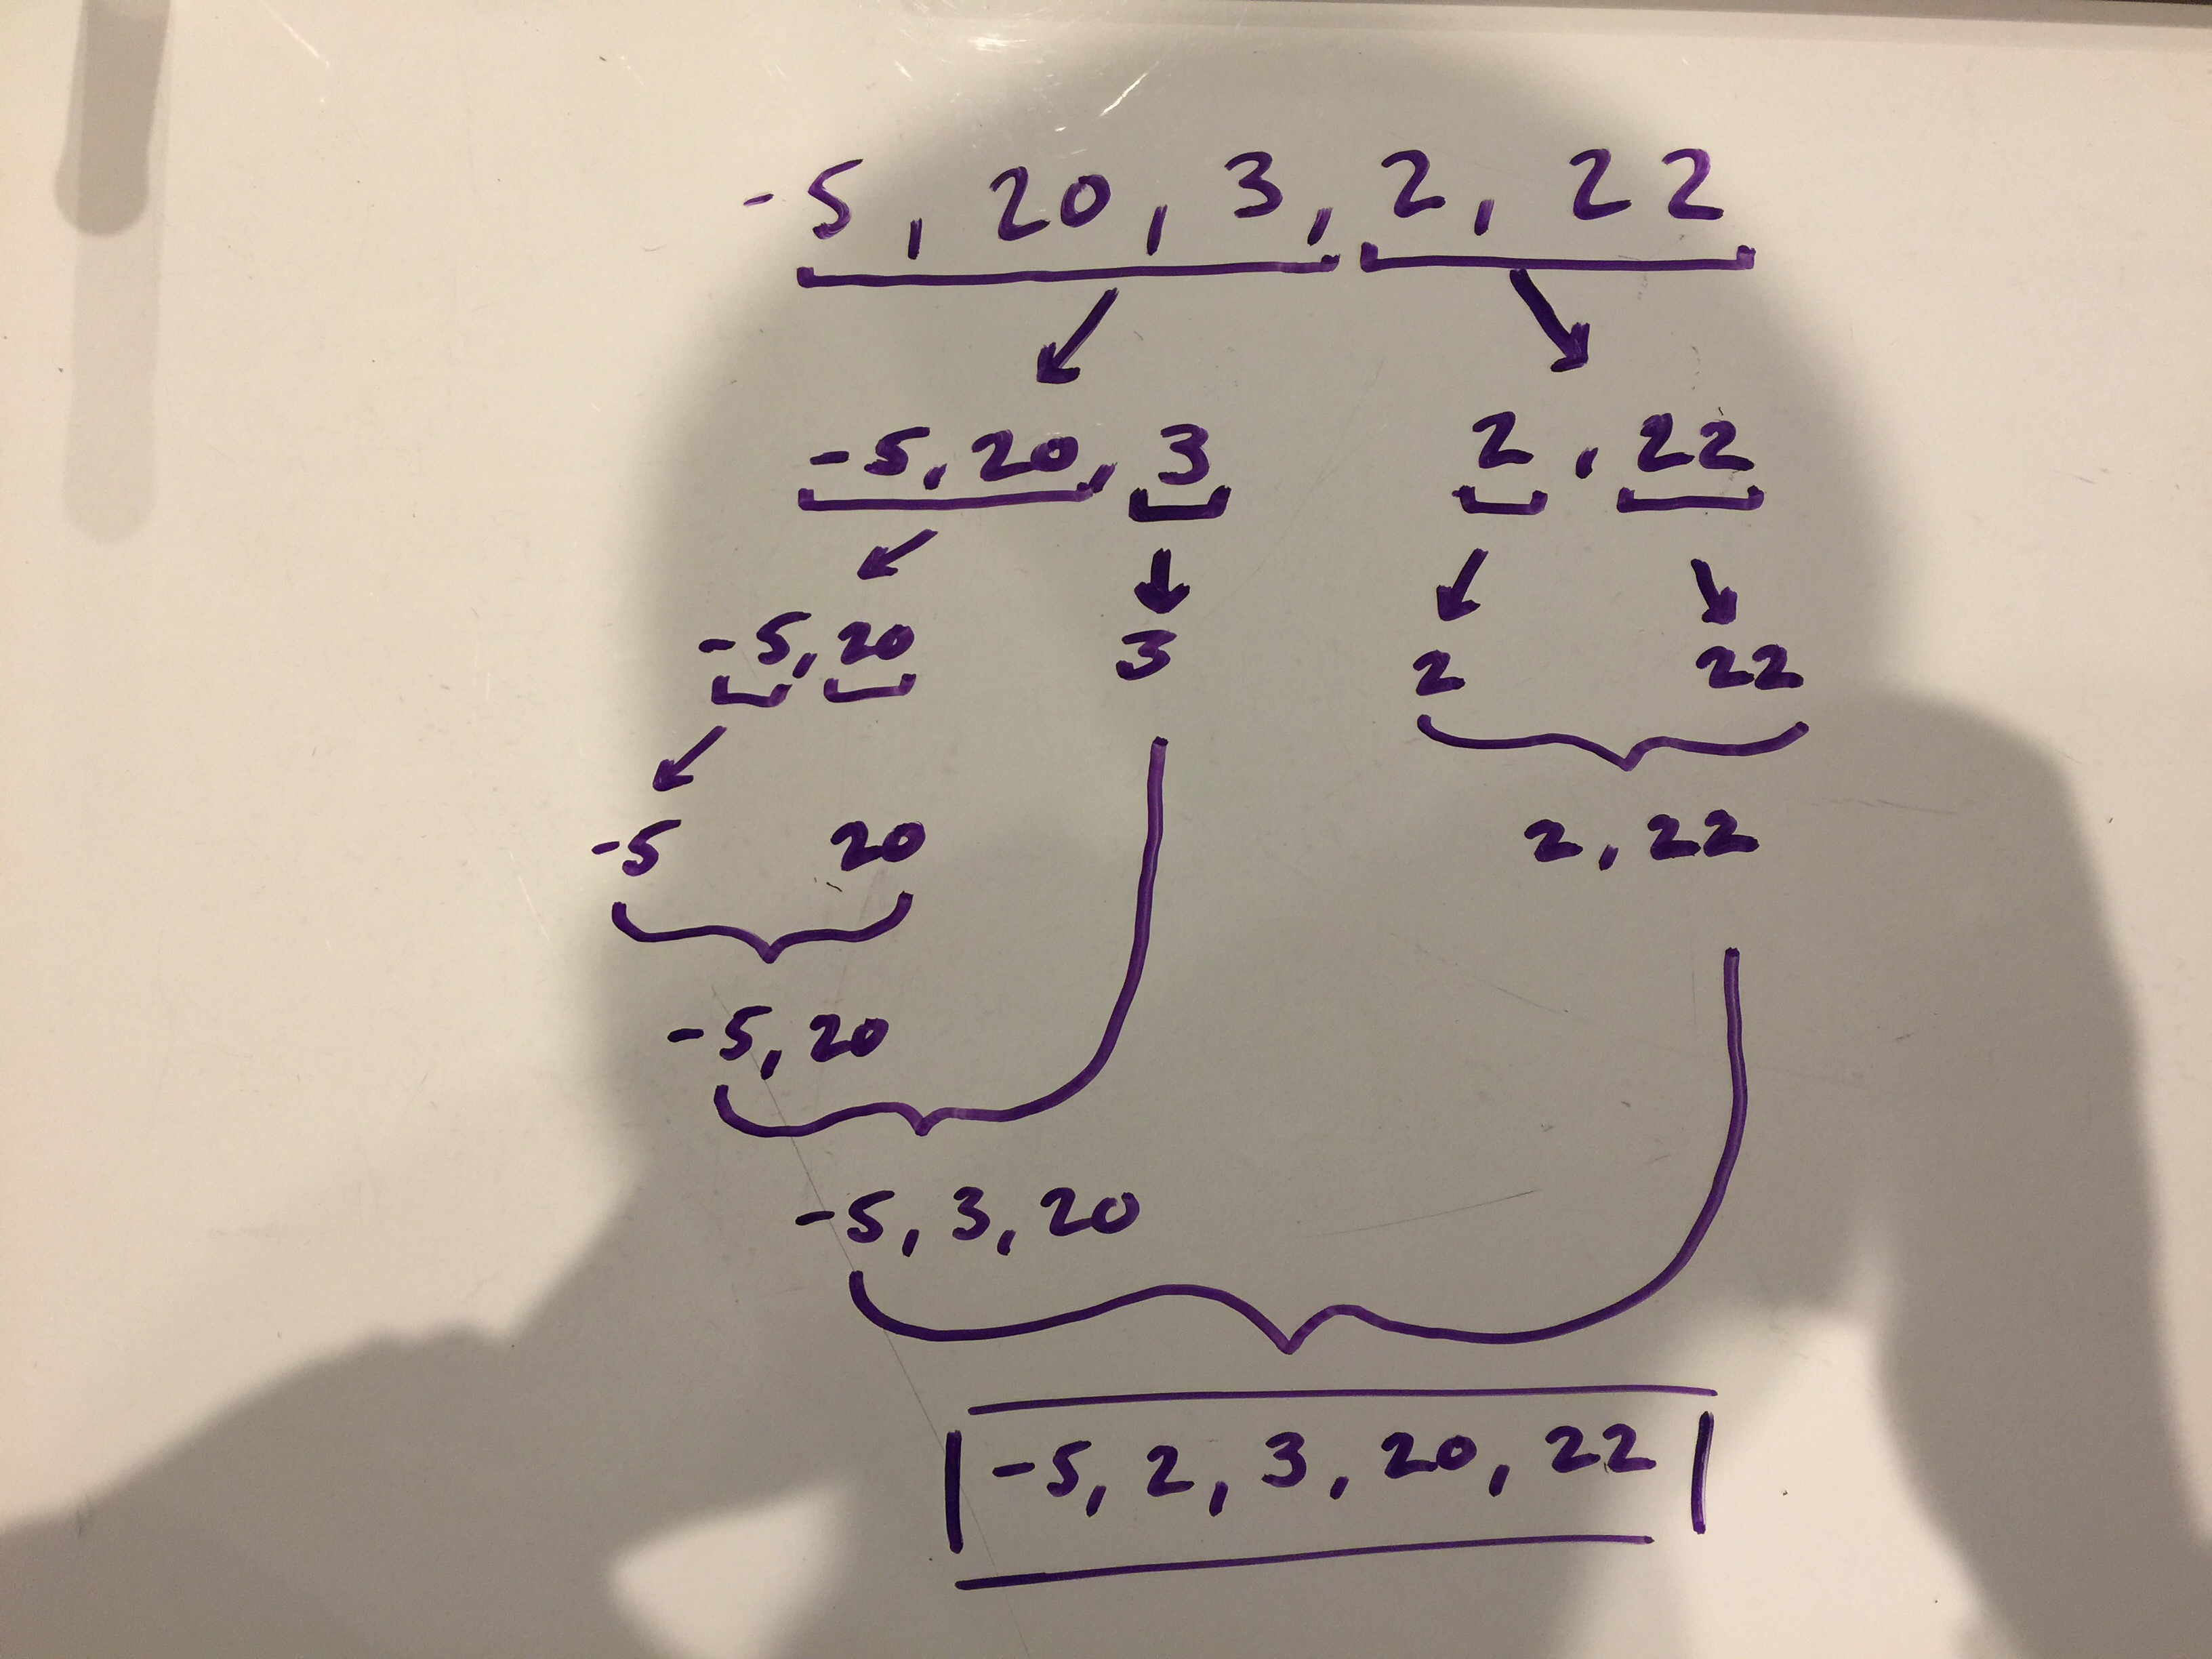 -5, 20, 3, 2, 22
-5, 20, 3 2, 22
-5, 20 3 2 22
-5 20 2, 22
-5, 20
-5, 3, 20
-5, 2, 3, 20, 22